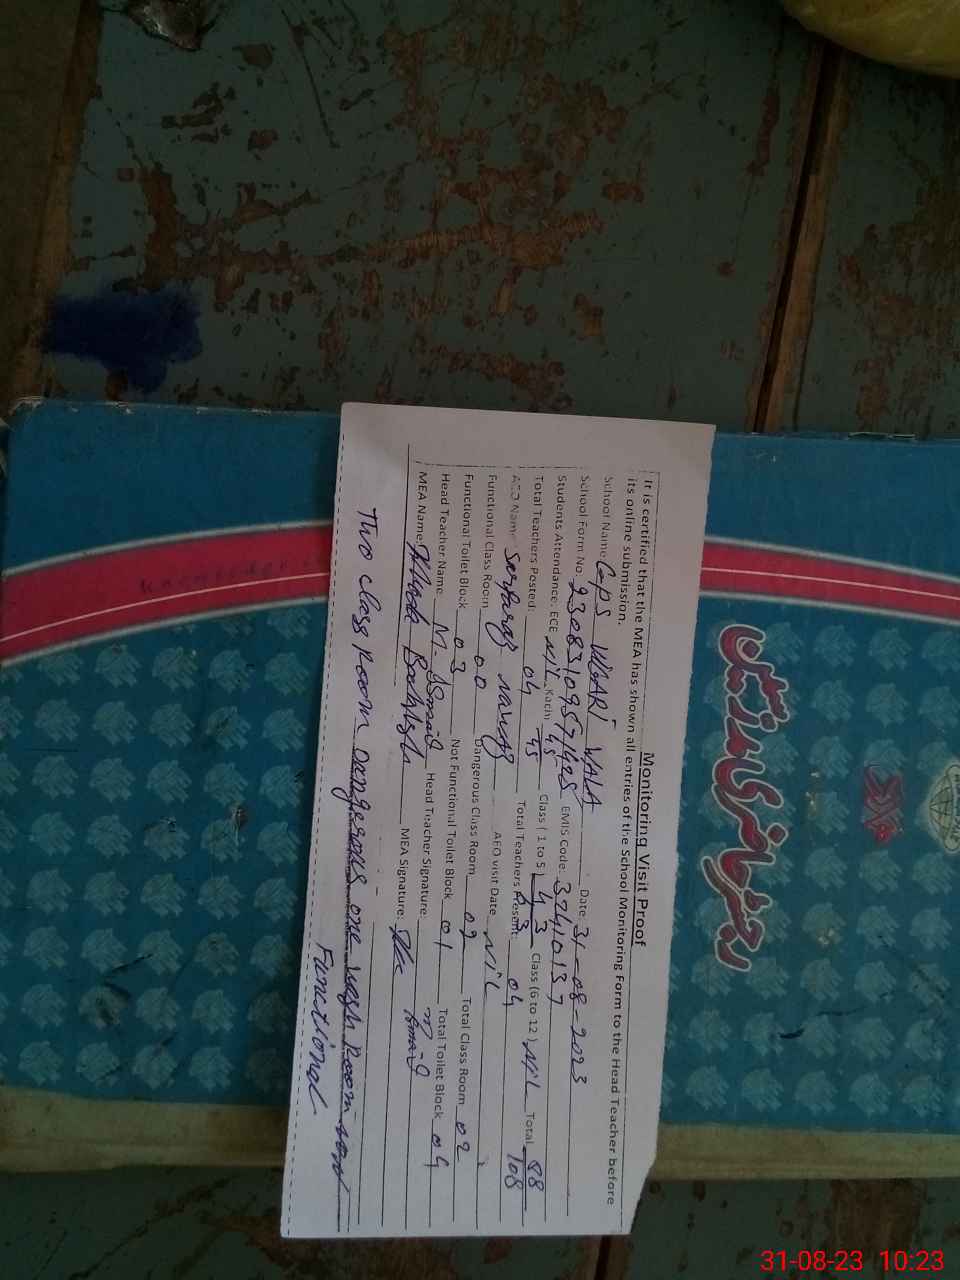 Monitoring Visit Proof
It is certified that the MEA has shown all entries of the School Monitoring Form to the Head Teacher before
its online submission.
School Name: GPS WALA Date: 31-08-2023
School Form No. EMIS Code: 32410137
Students Attendance: ECE NIL, Kachi 45/45 Class ( 1 to 5 ) 43 Class (6 to 12 ) NIL Total 88/108
Total Teachers Posted: 04 Total Teachers Present: 04
AEO Name: Sarfaraz Nawaz AEO visit Date NIL
Functional Class Room 00 Dangerous Class Room 02 Total Class Room 02
Functional Toilet Block 03 Not Functional Toilet Block 01 Total Toilet Block 04
Head Teacher Name M. Ismail Head Teacher Signature: M Ismail
MEA Name: Bakhsh MEA Signature:
Two class Room Dangerous one wash Room non
Functional
رجسٹر حاضری مدرسین
31-08-23 10:23